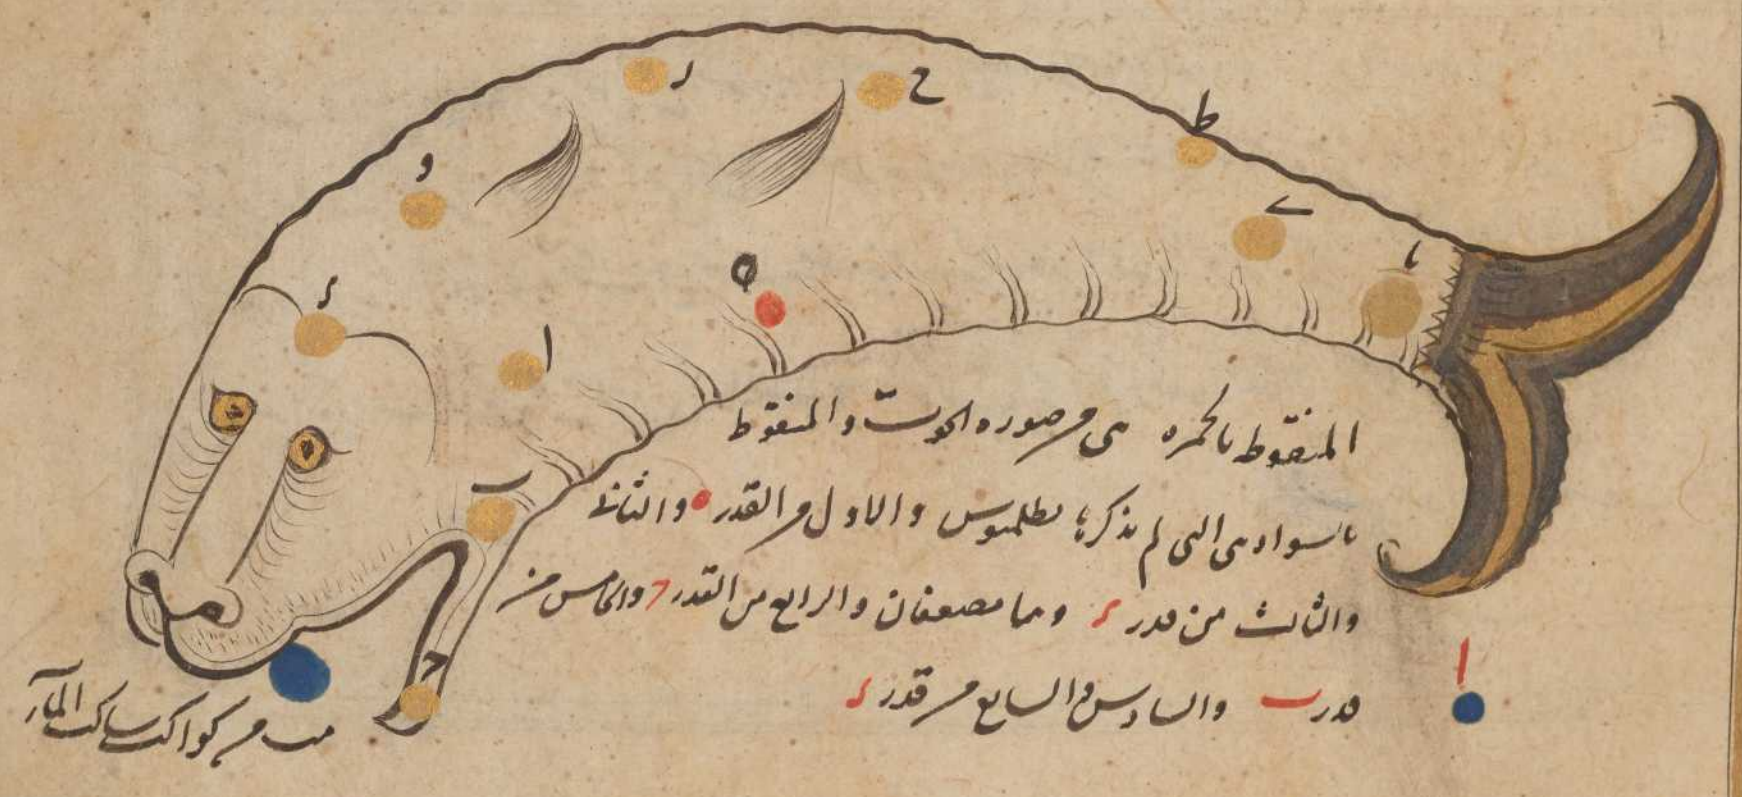 ر
ح
ط
و
ى
ه
ا
د
ا
المنقوط بالحمره هى من صوره الحوت والمنقوط
ب
بالسواد هى التى لم يذكرها بطلميوس والاول من القدر ه والثانى
والثالث من قدر د وهما مضعفان والرابع من القدر ح والخامس من
ا
ح
قدر ب والسادس والسابع من قدر د
من كواكب ساكب المآء